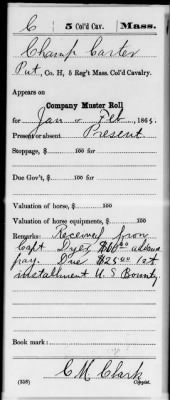 C | 5 Col'd Cav. | Mass.
Champ Carter
Pvt, Co. H, 5 Reg't Mass. Col'd Cavalry.
Appears on
Company Muster Roll
for Jan & Feb, 1865.
Present or absent Present
Stoppage, $ 100 for
Due Gov't, $ 100 for
Valuation of horse, $ 100
Valuation of horse equipments, $ 100
Remarks: Received from
Capt Dyer $ 00 advance
pay. Due $25.00 1st
installment U.S Bounty
Book mark:
C M Clark
(358) Copyist.